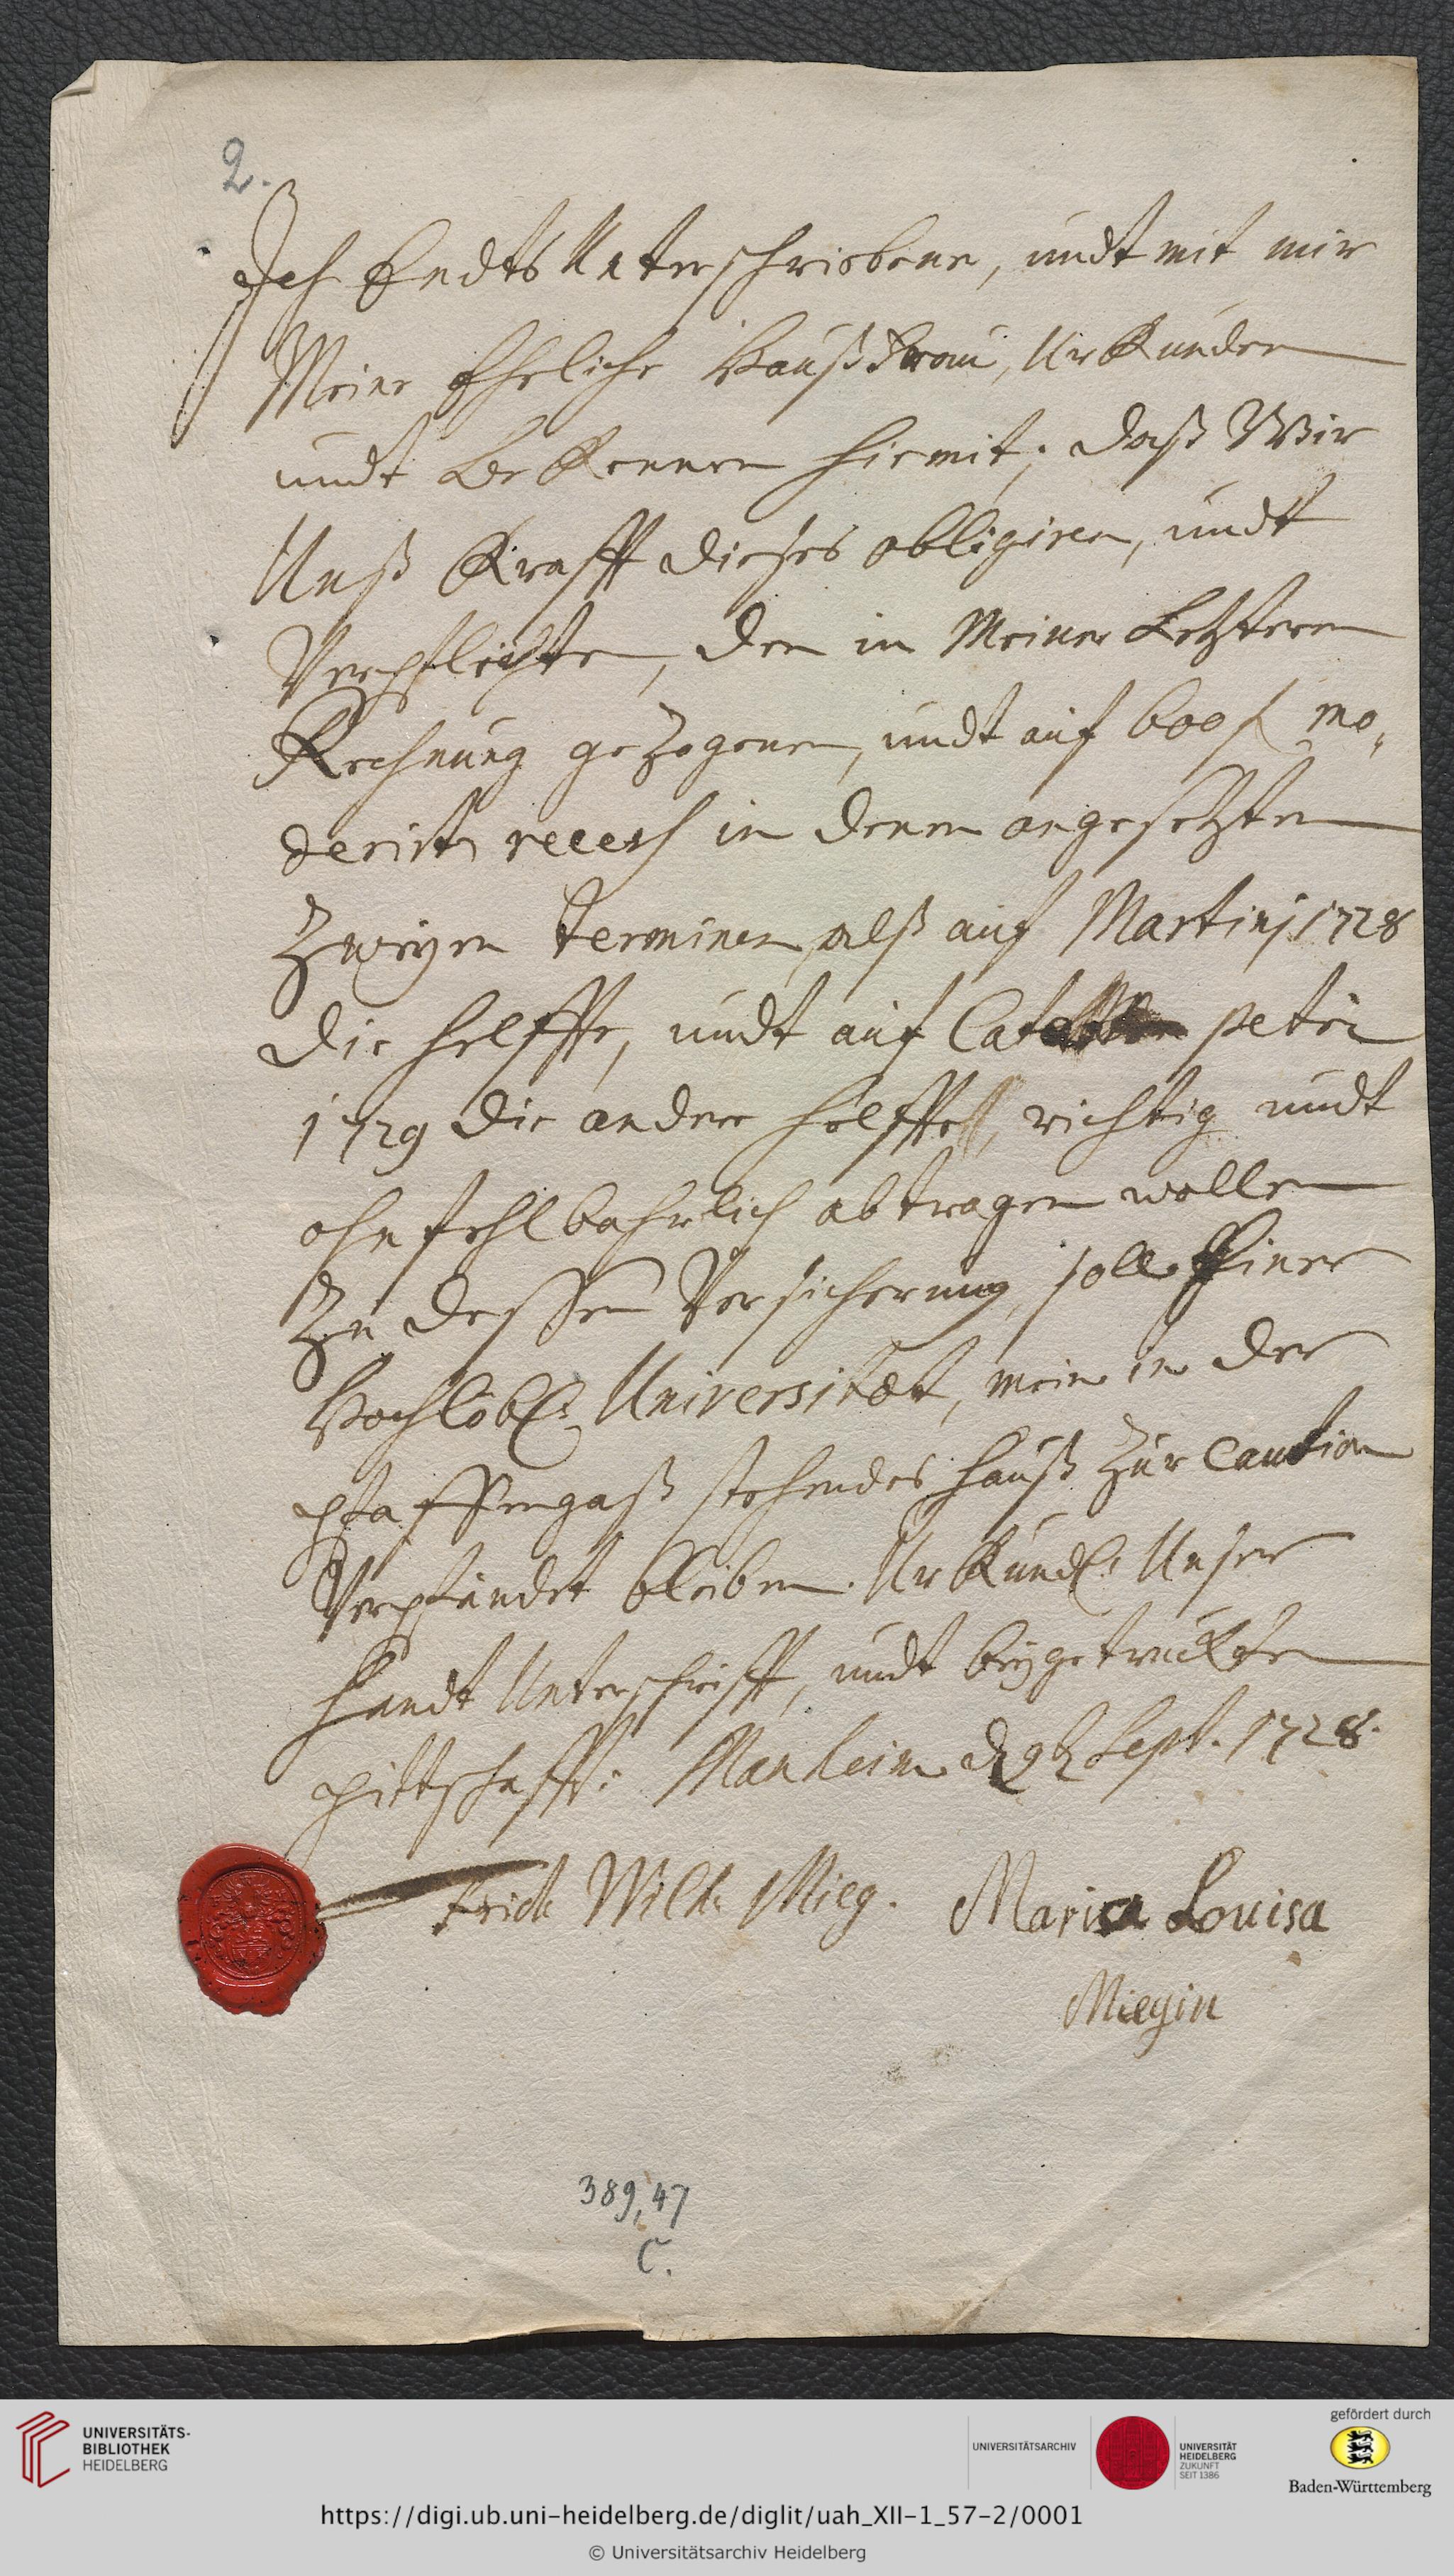 2.
Ich Endts Unterschriebene, undt mit mir
Meine Eheliche Haußfrau, Urkunden
undt bekennen hiermit, daß Wir
Unß Krafft dießes obligiren, undt
Verpflichten, den in Meiner Letzteren
Rechnung gezogenen, undt auf 600 f mo-
derirten recess in denen angesetzten
Zweyen Terminen, alß auf Martinj 1728
die helffte, undt auf Cat petri
1729 die andere helffte, richtig undt
ohnfehlbahrlich abtragen wollen
Zu dessen Versicherung, solle Einer
Hochlöbl: Universitæt, mein in der
pfaffengaß stehendes hauß Zur Caution
Verpfändet bleiben. Urkundl: Unser
handt Unterschrifft, undt beygetruckten
pittschafft: Manheim d 9t Sept. 1728.
Frid: Wilh: Mieg. Maria Louisa
Miegin
389,47
C.
UNIVERSITÄTS-
BIBLIOTHEK
HEIDELBERG
UNIVERSITÄTSARCHIV
UNIVERSITÄT
HEIDELBERG
ZUKUNFT
SEIT 1386
gefördert durch
Baden-Württemberg
https://digi.ub.uni-heidelberg.de/diglit/uah_XII-1_57-2/0001
© Universitätsarchiv Heidelberg